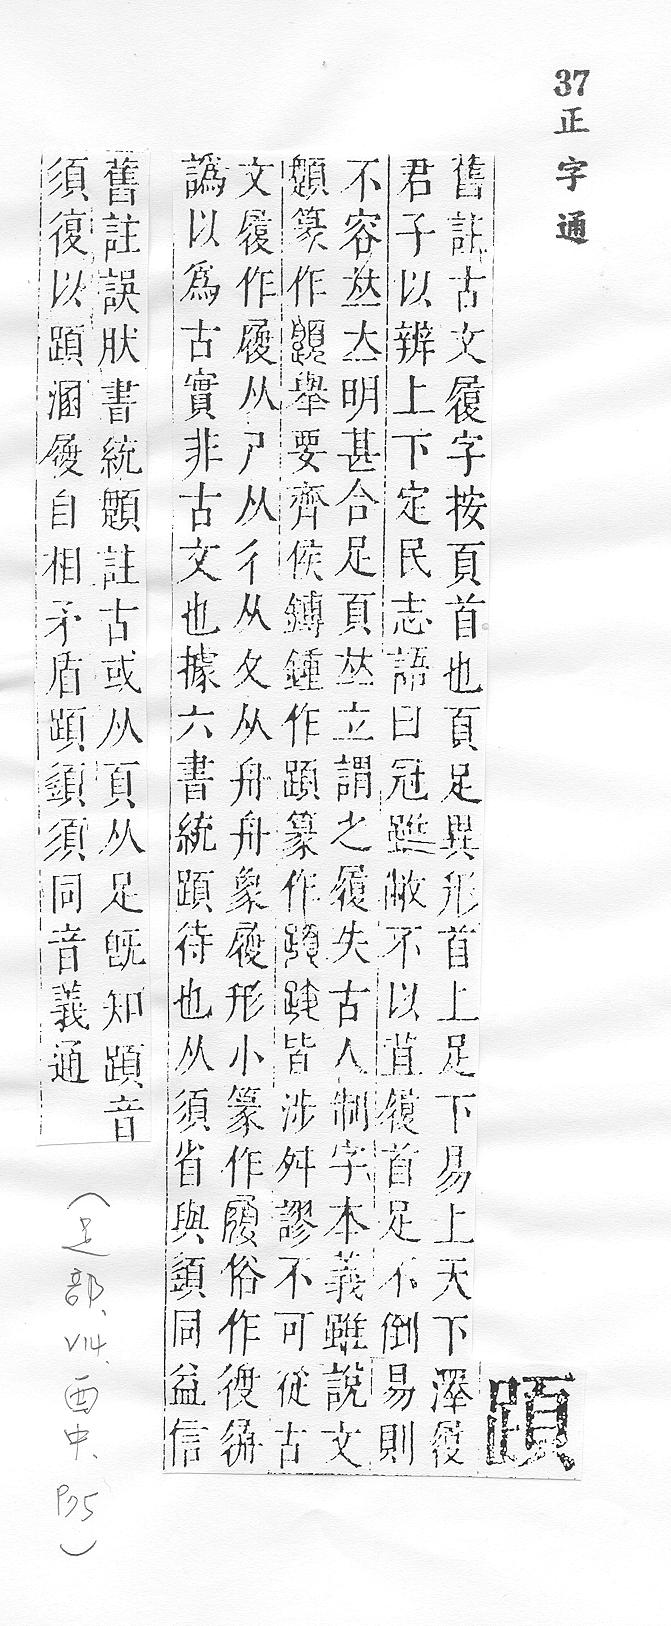 37正字通
䠘
舊註古文履字按頁首也頁足異形首上足下易上天下澤履
君子以辨上下定民志語曰冠雖敝不以苴履首足不倒易則
不容𠀤大明甚合足頁𠀤立謂之履失古人制字本義雖說文
顊篆作舉要齊侯鎛鍾作䠘篆作皆涉舛謬不可從古
文履作履从尸从彳从夊从舟舟象履形小篆作履俗作履
譌以爲古實非古文也據六書統䠘待也从須省與䇓同益信
舊註誤肰書統顊註古或从頁从足旣知䠘音
須復以䠘溷履自相矛盾䠘䇓須同音義通
(足部、V14、酉中、P75)